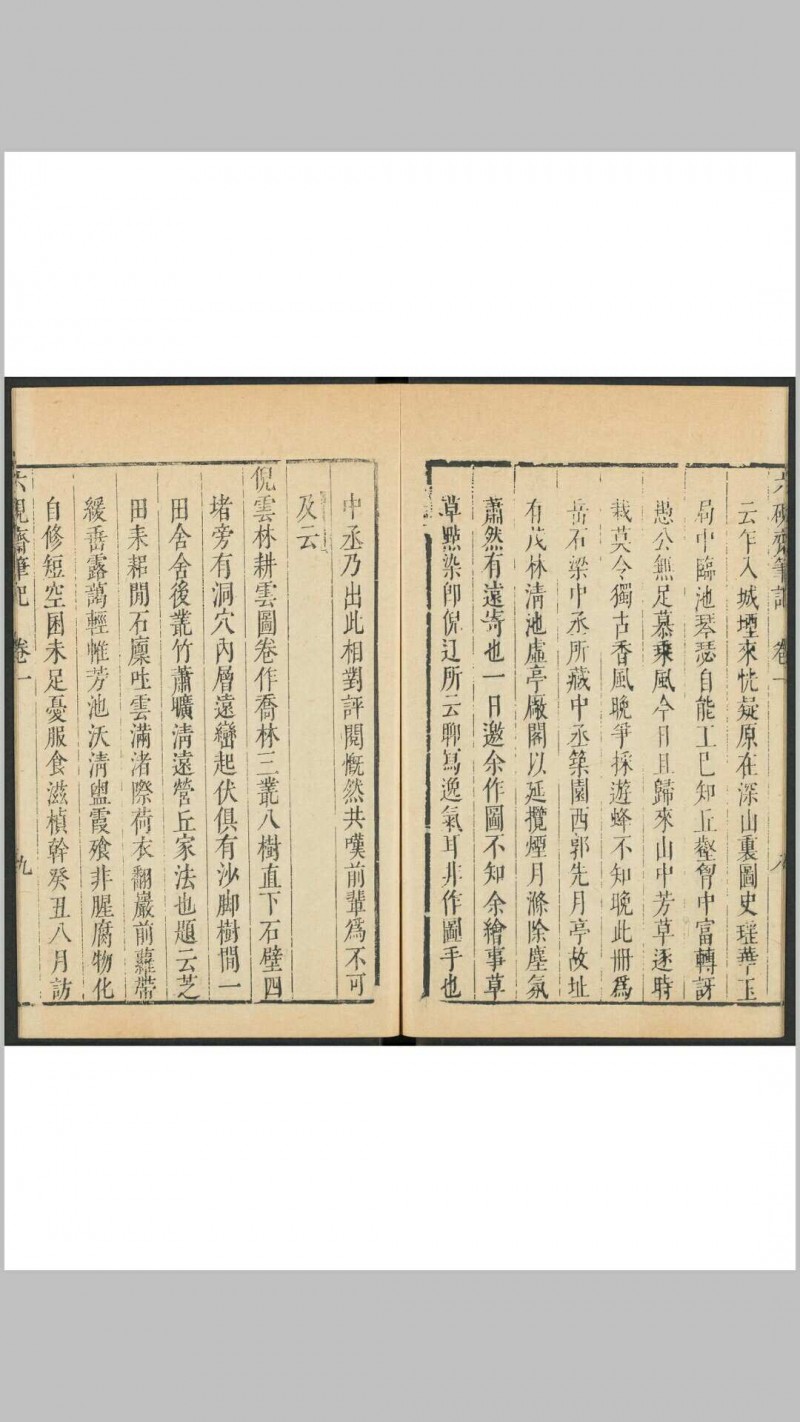 六硯齋筆記 卷一
云乍入城堙來恍疑原在深山裏圖史璀華玉
局中臨池琴瑟自能工已知丘壑胷中富轉訝
愚公無足慕乘風今日且歸來山中芳草逐時
栽莫令獨古香風晚爭採遊蜂不知晚此冊爲
岳石梁中丞所藏中丞築園西郭先月亭故址
有茂林清池虛亭厰閣以延攬煙月滌除塵氛
蕭然有遠寄也一日邀余作圖不知余繪事草
草㸃染卽倪迂所云聊寫逸氣耳非作圖手也
中丞乃出此相對評閱慨然共嘆前輩爲不可
及云
倪雲林耕雲圖卷作喬林三叢八樹直下石壁四
堵旁有洞穴內層遠巒起伏俱有沙脚樹間一
田舍舍後叢竹蕭曠清遠營丘家法也題云芝
田耒耜閒石廩吐雲滿渚際荷衣翻巖前蘿帶
緩畚露萵輕帷芳池沃清盥霞飱非腥腐物化
自修短空困未足憂服食滋楨幹癸丑八月訪
六硯齋筆記 卷一 九